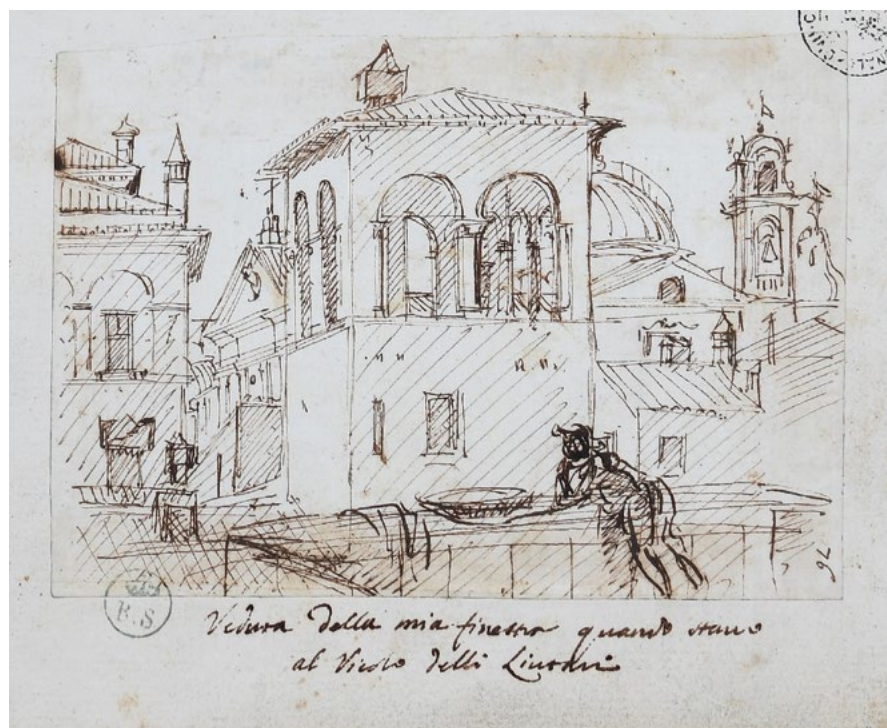 Veduta della mia finestra quando stavo
al Vicolo delli Liutari
B.S
76